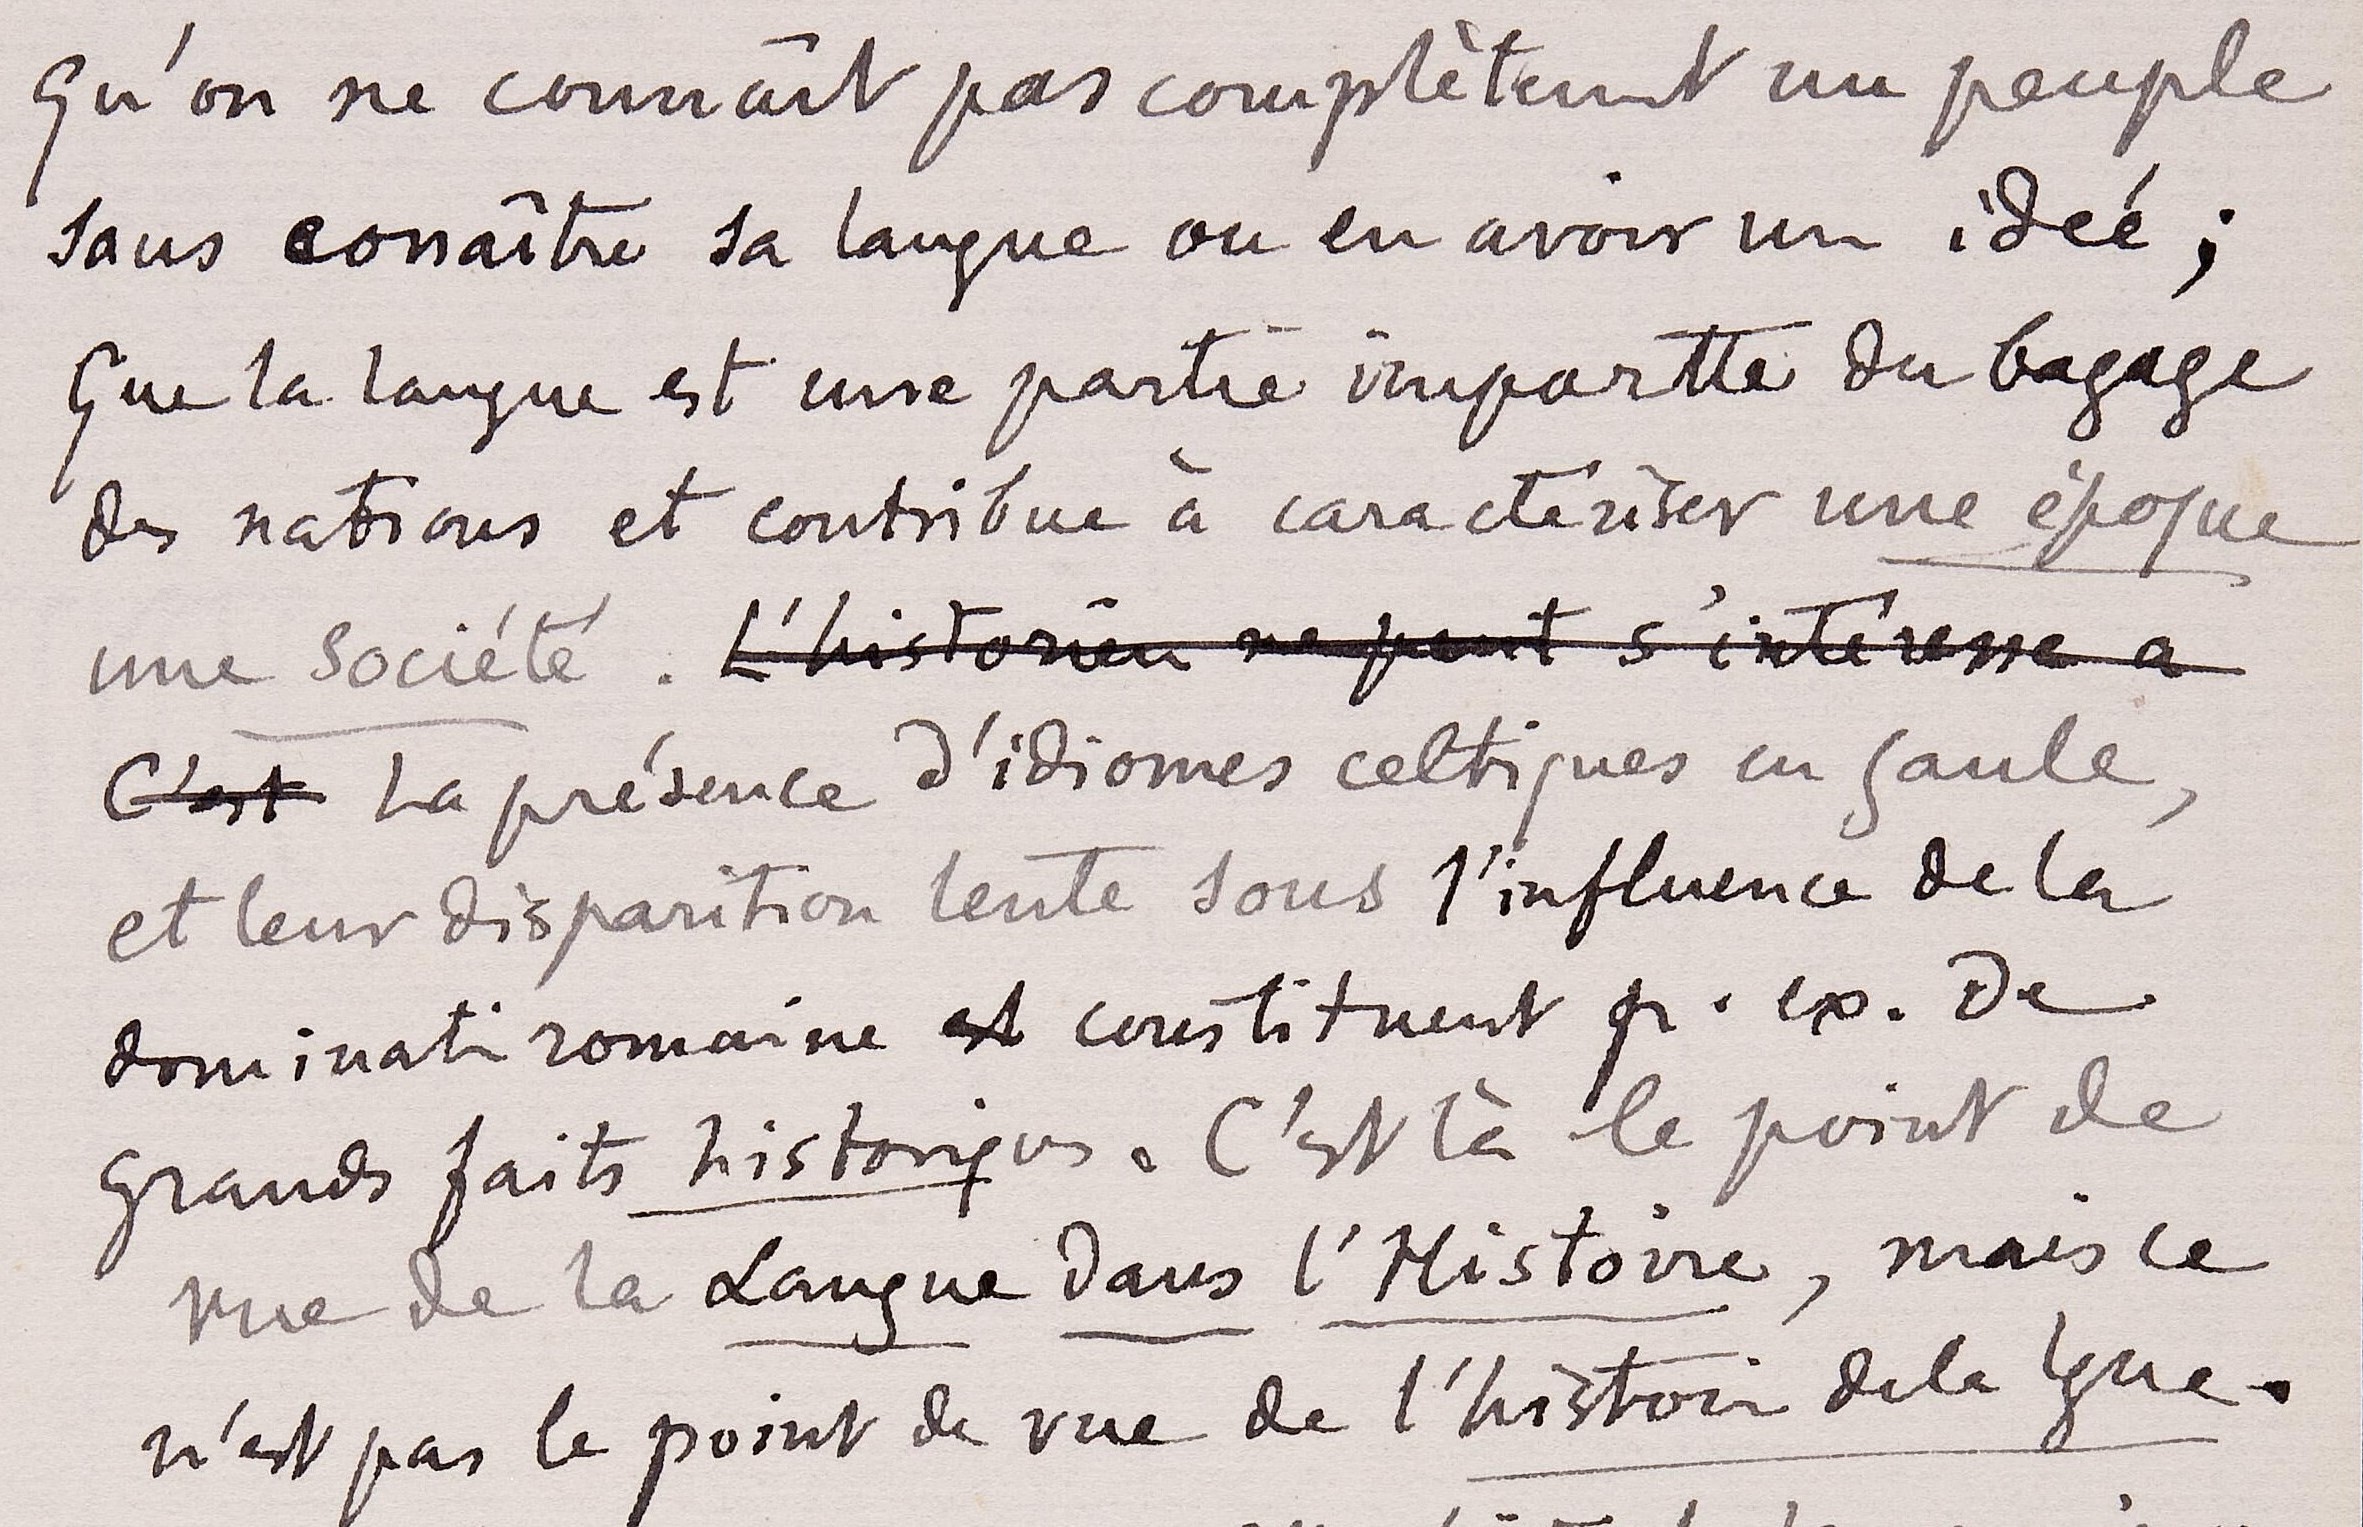 Qu'on ne connaît pas complètement un peuple
sans conaître sa langue ou en avoir un idée ;
Que la langue est une partie importte du bagage
des nations et contribue à caractériser une époque
une société . L'historien ne peut s'intéresse a
C'est La présence d'idiomes celtiques en Gaule,
et leur disparition lente sous l'influence de la
dominati romaine est constituent p. ex. De
grands faits historiques. C'est là le point de
vue de la Langue dans l'Histoire, mais ce
n'est pas le point de vue de l'histoir de la lgue.